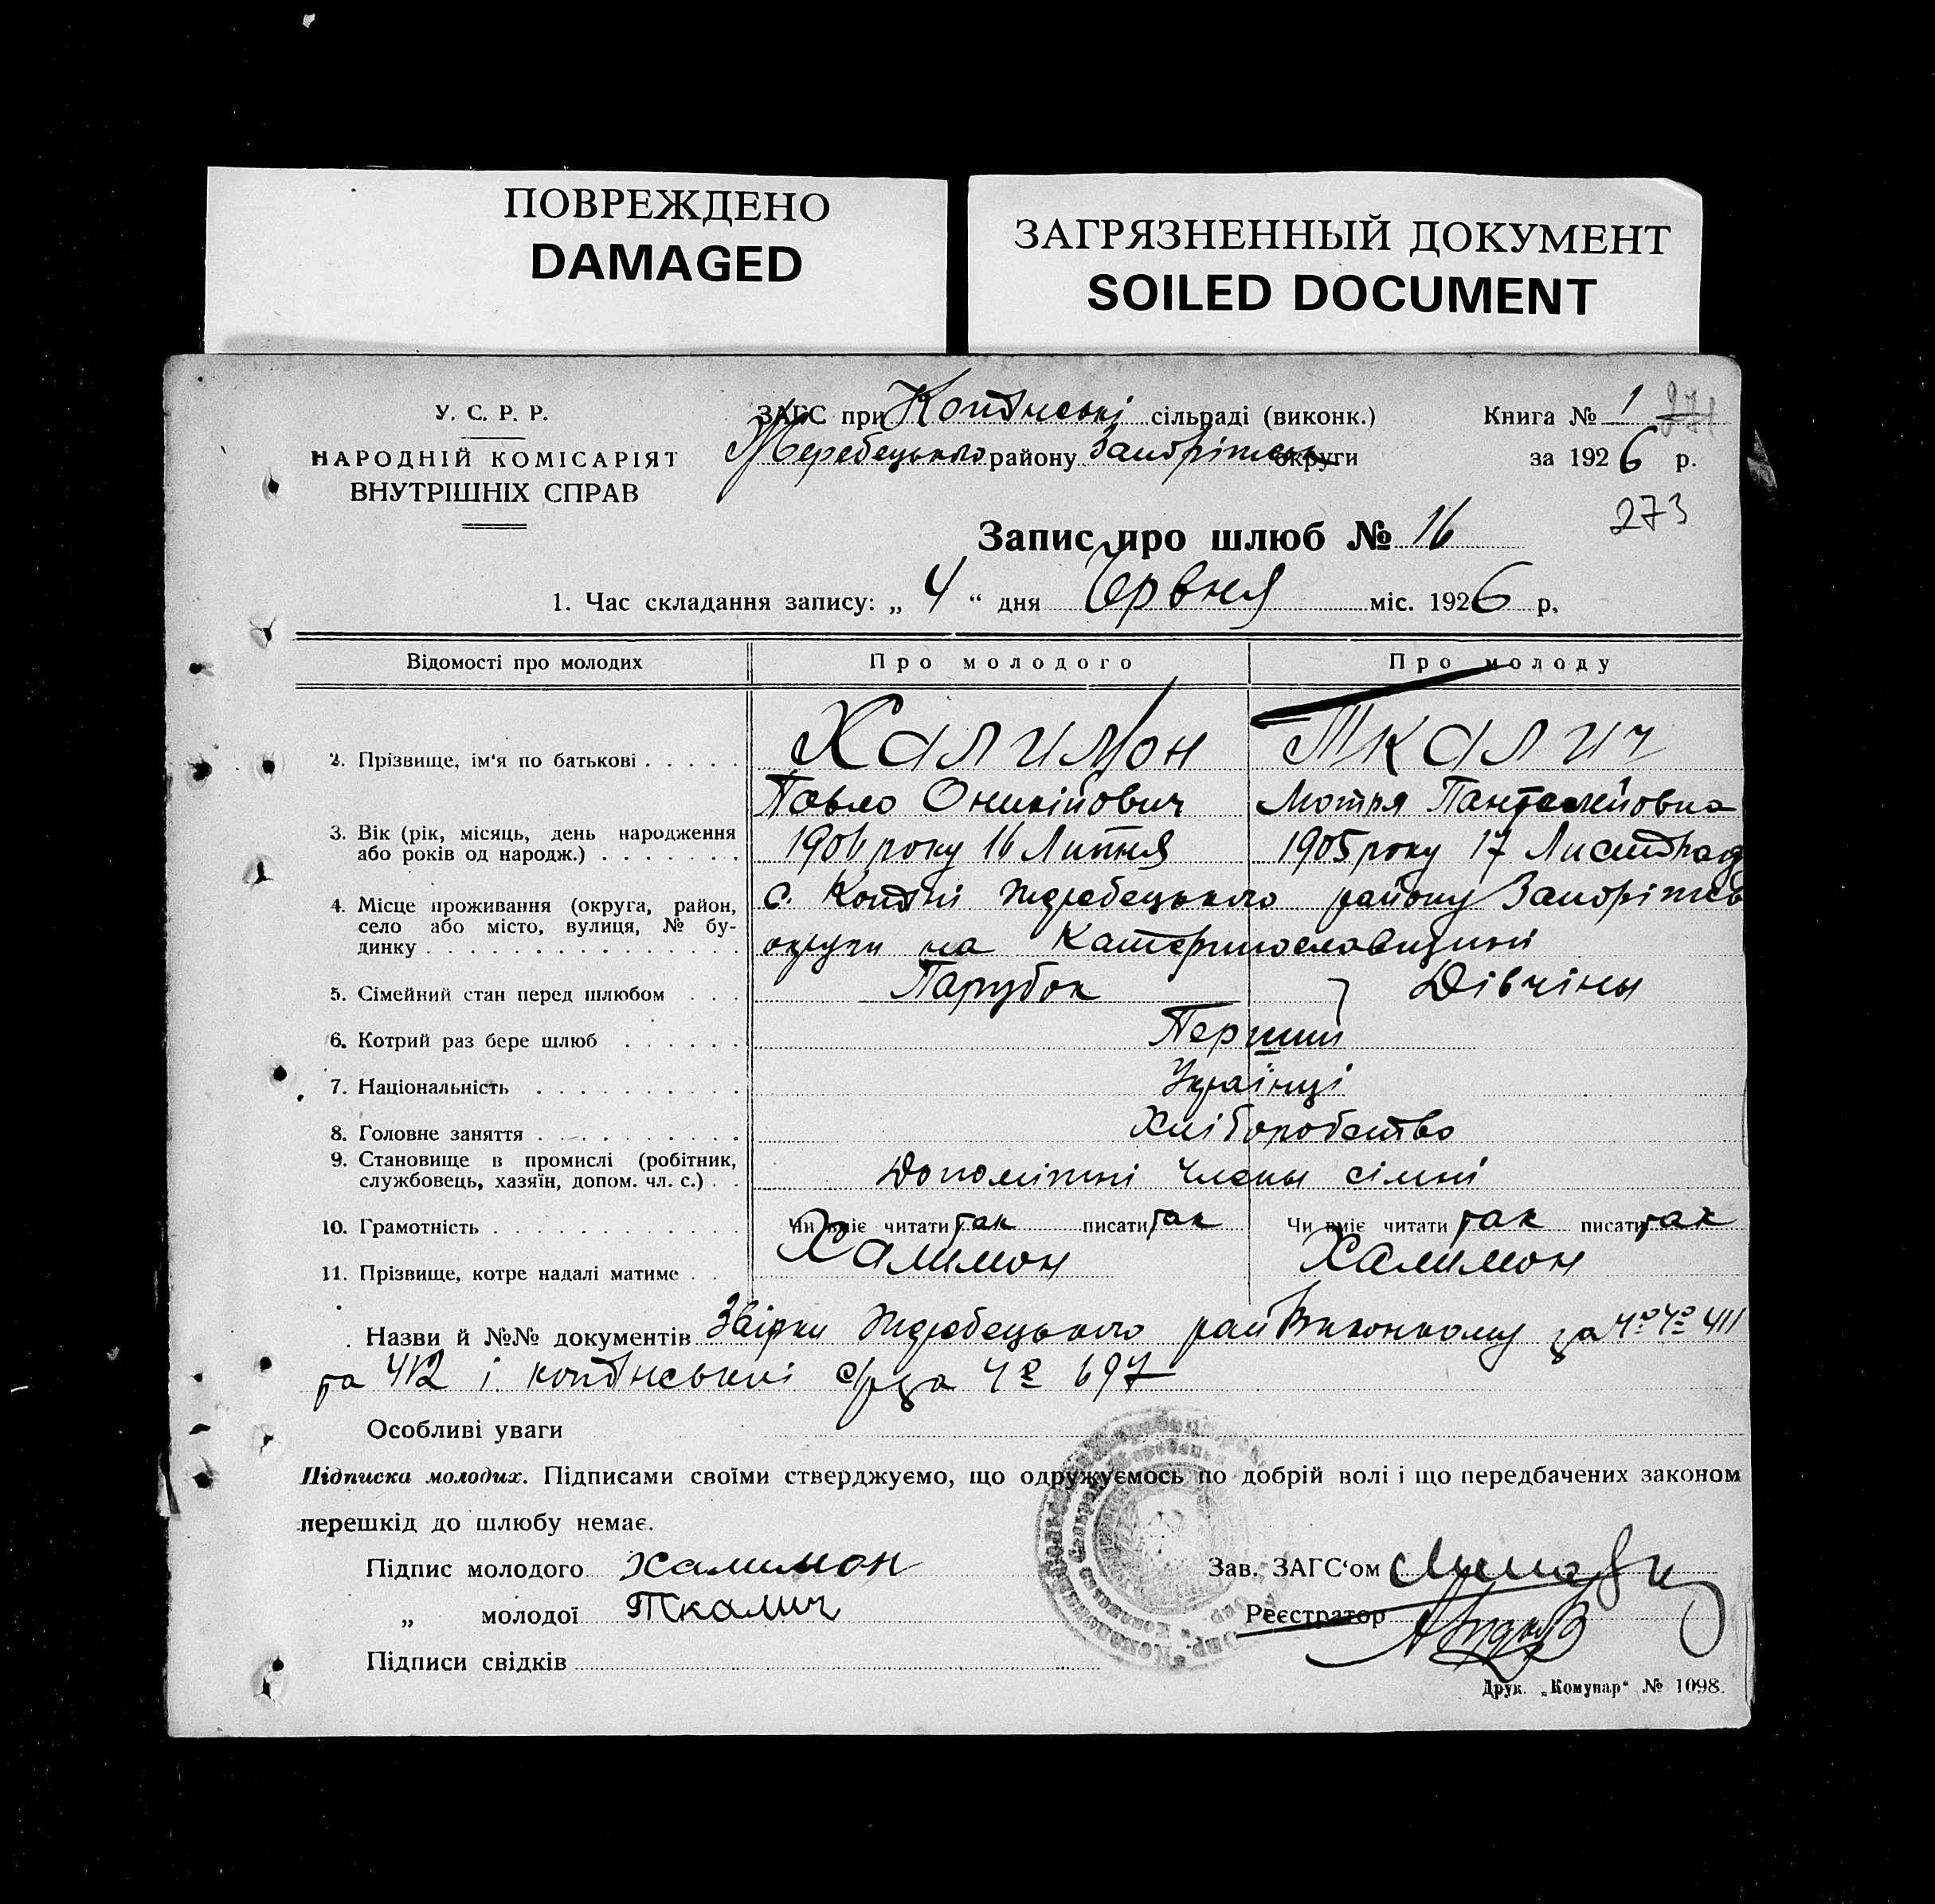 ПОВРЕЖДЕНО
DAMAGED
ЗАГРЯЗНЕННЫЙ ДОКУМЕНТ
SOILED DOCUMENT
У. С. Р. Р.
НАРОДНІЙ КОМІСАРІЯТ
ВНУТРІШНІХ СПРАВ
ЗАГС при сільраді (виконк.)
Жеребецького району Запоріжськ округи
Книга № 1 271
за 1926 р.
273
Запис про шлюб № 16
1. Час складання запису: „ 4 “ дня Червня міс. 1926 р.
Відомості про молодих Про молодого Про молоду
2. Прізвище, ім'я по батькові Халимон Ткалич
Павло Оникійович Мотря
3. Вік (рік, місяць, день народження
або років од народж.) 1906 року 16 Липня 1905 року 17 Листопад
4. Місце проживання (округа, район,
село або місто, вулиця, № бу-
динку
с. Жеребецького району Запоріжсь
округи на Катеринославщині
5. Сімейний стан перед шлюбом Парубок Дівчина
6. Котрий раз бере шлюб Перший
7. Національність Українці
8. Головне заняття Хліборобство
9. Становище в промислі (робітник,
службовець, хазяїн, допом. чл. с.) Допоміжні члени сімні
10. Грамотність Чи вміє читати так писати так Чи вміє читати так писати так
11. Прізвище, котре надалі матиме Халимон Халимон
Назви й №№ документів Жеребецького райвиконкому за 411
та 412 і 697
Особливі уваги
Підписка молодих. Підписами своїми стверджуємо, що одружуємось по добрій волі і що передбачених законом
перешкід до шлюбу немає.
Підпис молодого Халимон
„ молодої Ткалич
Підписи свідків
Зав. ЗАГС'ом
Реєстратор
Друк. „Комунар“ № 1098.